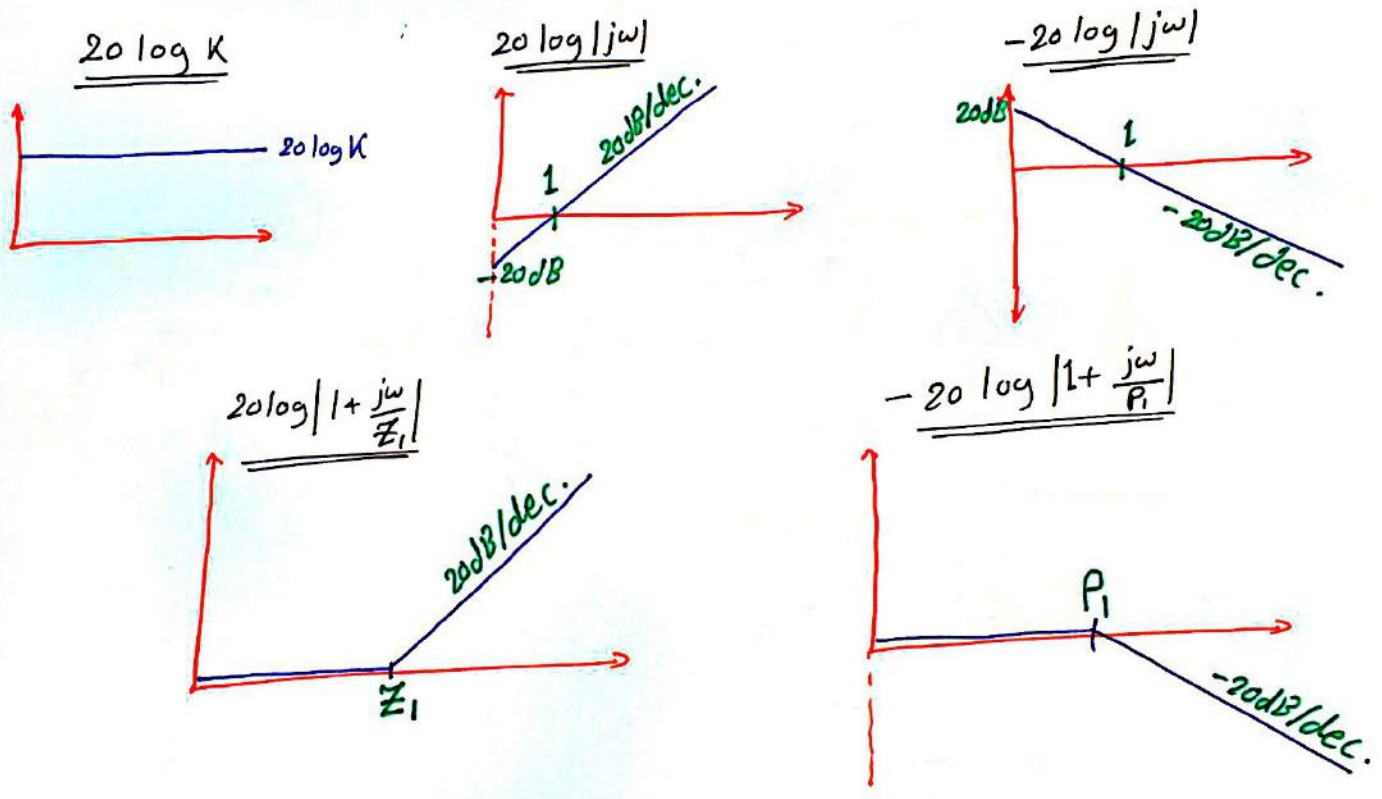 20 log K
20 log K
20 log |jω|
20dB/dec.
1
-20dB
-20 log |jω|
20dB
1
-20dB/dec.
20log|1+ jω/Z₁|
20dB/dec.
Z₁
-20 log |1+ jω/P₁|
P₁
-20dB/dec.